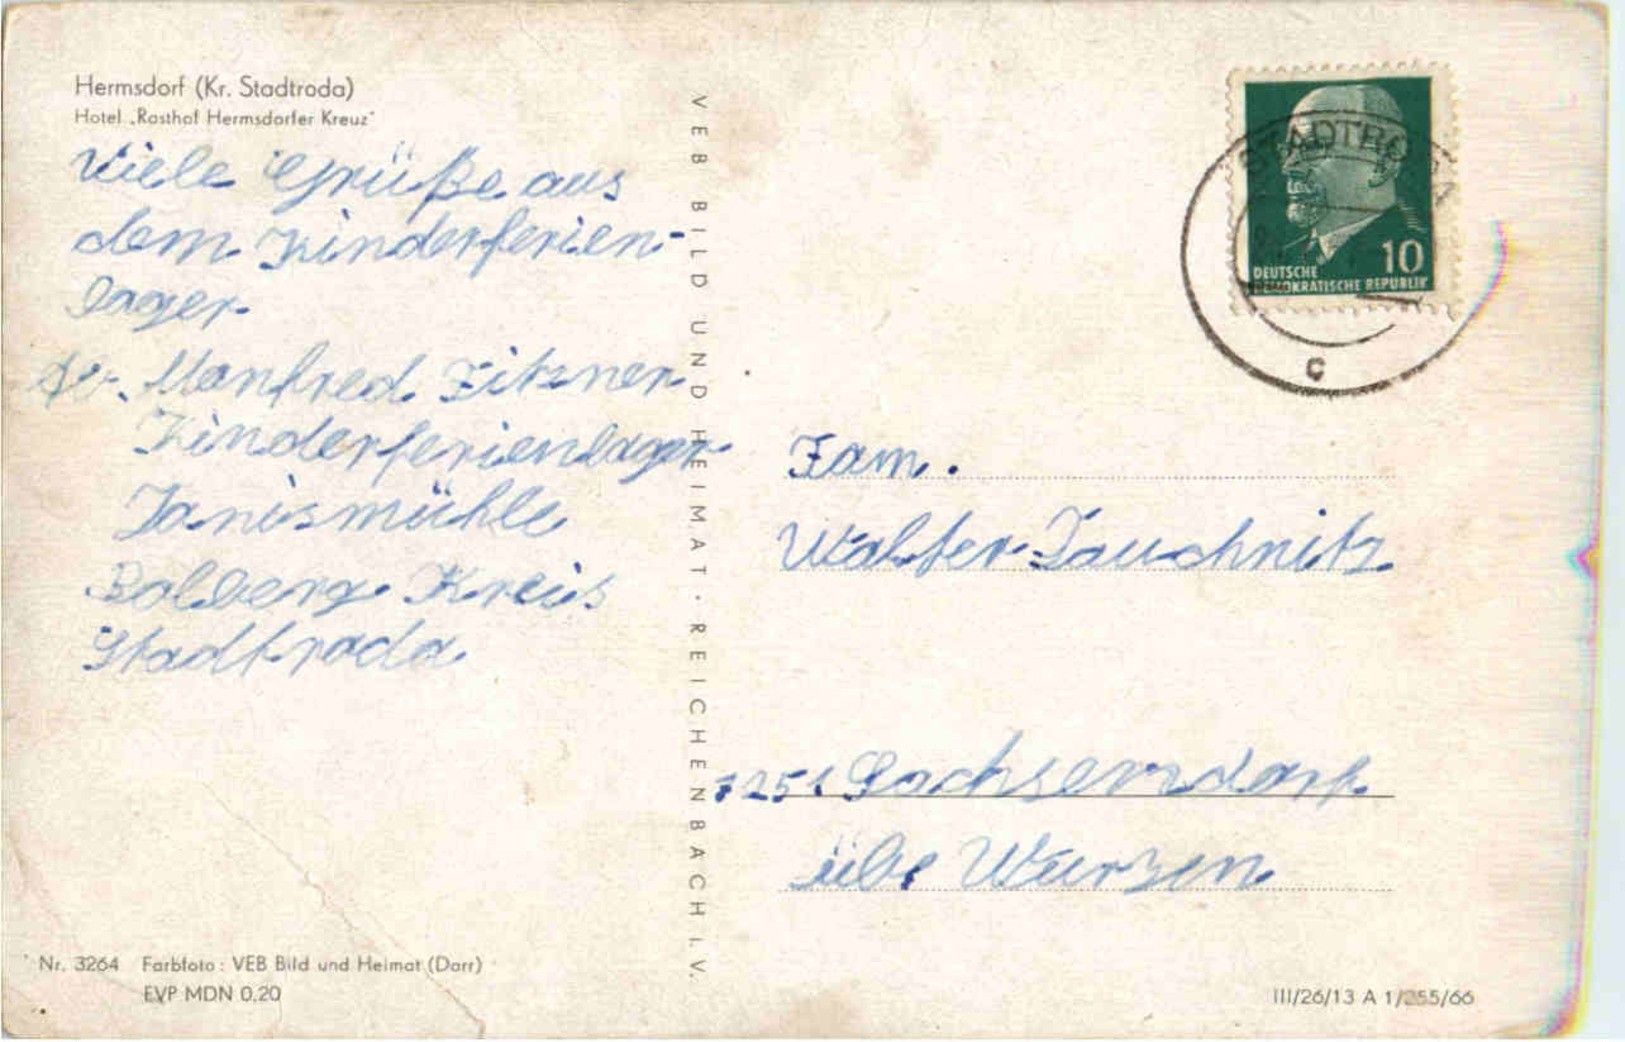 Hermsdorf (Kr. Stadtroda)
Hotel „Rasthof Hermsdorfer Kreuz"
Viele Grüße aus
dem Kinderferien-
lager
Manfred Fitzner
Kinderferienlager
Janismühle
Bolberg Kreis
Stadtroda
Nr. 3264 Farbfoto: VEB Bild und Heimat (Darr)
EVP MDN 0,20
VEB BILD UND HEIMAT · REICHENBACH I. V.
STADTRODA
10
DEUTSCHE
DEMOKRATISCHE REPUBLIK
c
Fam.
Walter Tauchnitz
7251 Sachsendorf
übe Wurzen
III/26/13 A 1/255/66